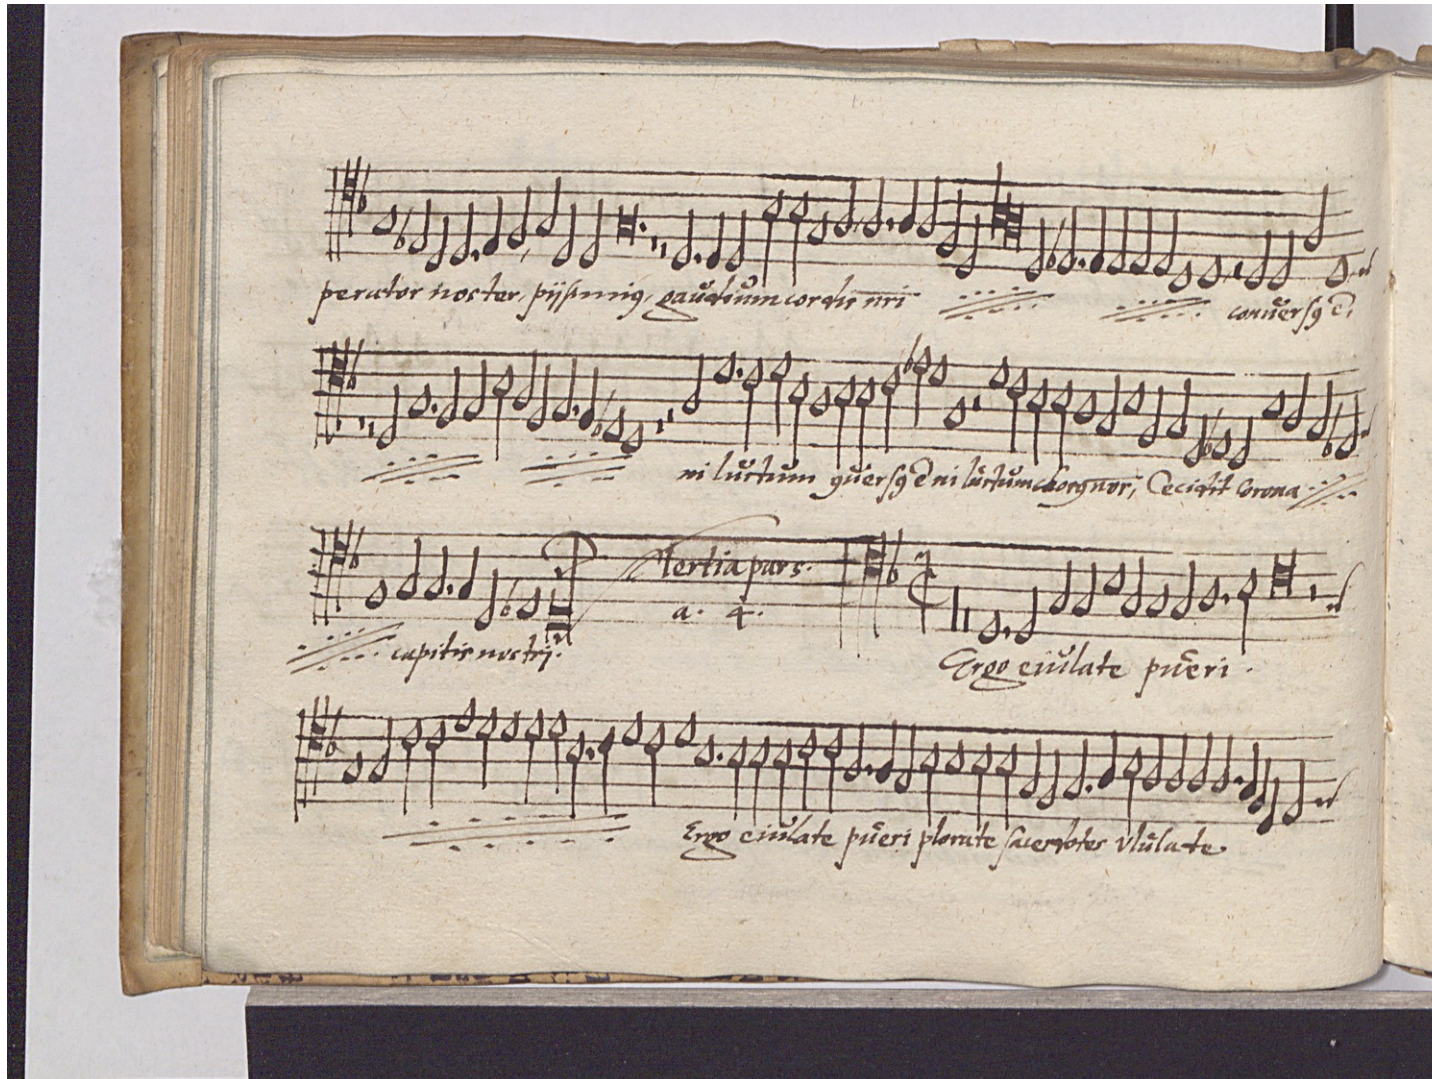 perator noster, pijssimi9, gaudium cordis nri conuers9 ē,
ni luctum 9uers9 ē ni luctum chor9 nor, Cecidit Corona
Tertia pars.
a. 4.
capitis nostri. Ergo eiulate pueri.
Ergo eiulate pueri plorate sacerdotes vlulate